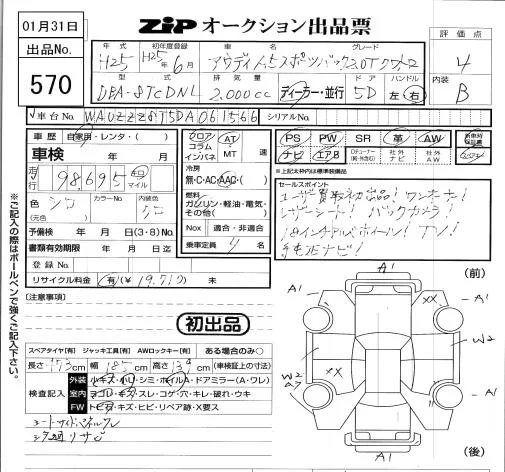 01月31日
ZIP オークション出品票
評価点
出品No.
570
年式 初年度登録 車名 グレード
H25 H25年6月 アウディA5スポーツバック2.0Tクワトロ
4
型式 排気量 ドア ハンドル
DBA-8TCDNL 2,000cc ディーラー・並行 5D 左・右
内装
B
車台No. WAUZZZ8T5DA061566 シリアルNo.
車歴 自家用・レンタ・( )
フロア コラム インパネ
AT・MT 速
PS PW SR 革 AW
ナビ エアB 社外ナビ 社外AW
車検 年 月
※上記太枠内は標準装備品
走行 98,695 キロ マイル
冷房
無・C・AC・AAC・( )
セールスポイント
ユーザー買取初出品!ワンオーナー!
レザーシート!バックカメラ!
18インチアルミホイール!TV!
純正ナビ!
色 シロ カラーNo. 内装色 クロ
(元色)
燃料
ガソリン・軽油・電気・その他( )
予備検 年 月 日(3・8)No.
Nox 適合・非適合
書類有効期限 年 月 日迄
乗車定員 4 名
登録No.
リサイクル料金 有(¥19,710) 未
(前)
【注意事項】
初出品
スペアタイヤ[有] ジャッキ工具[有] AWロックキー[有] ある場合のみ○
長さ 473cm 幅 185cm 高さ 139cm (車検証上の寸法)
検査記入
外装 ルーキズ・小リ・シミ・ホイルA・ドアミラー(A・ワレ)
室内 ヨゴレ・キズ・スレ・コゲ・穴・キレ・破れ・ウキ
FW トビ石・キズ・ヒビ・リペア跡・X要ス
A1
A1
XX
A1
W2
W2
A2
XX
A1
A1
(後)
※ご記入の際はボールペンで強くご記入下さい。